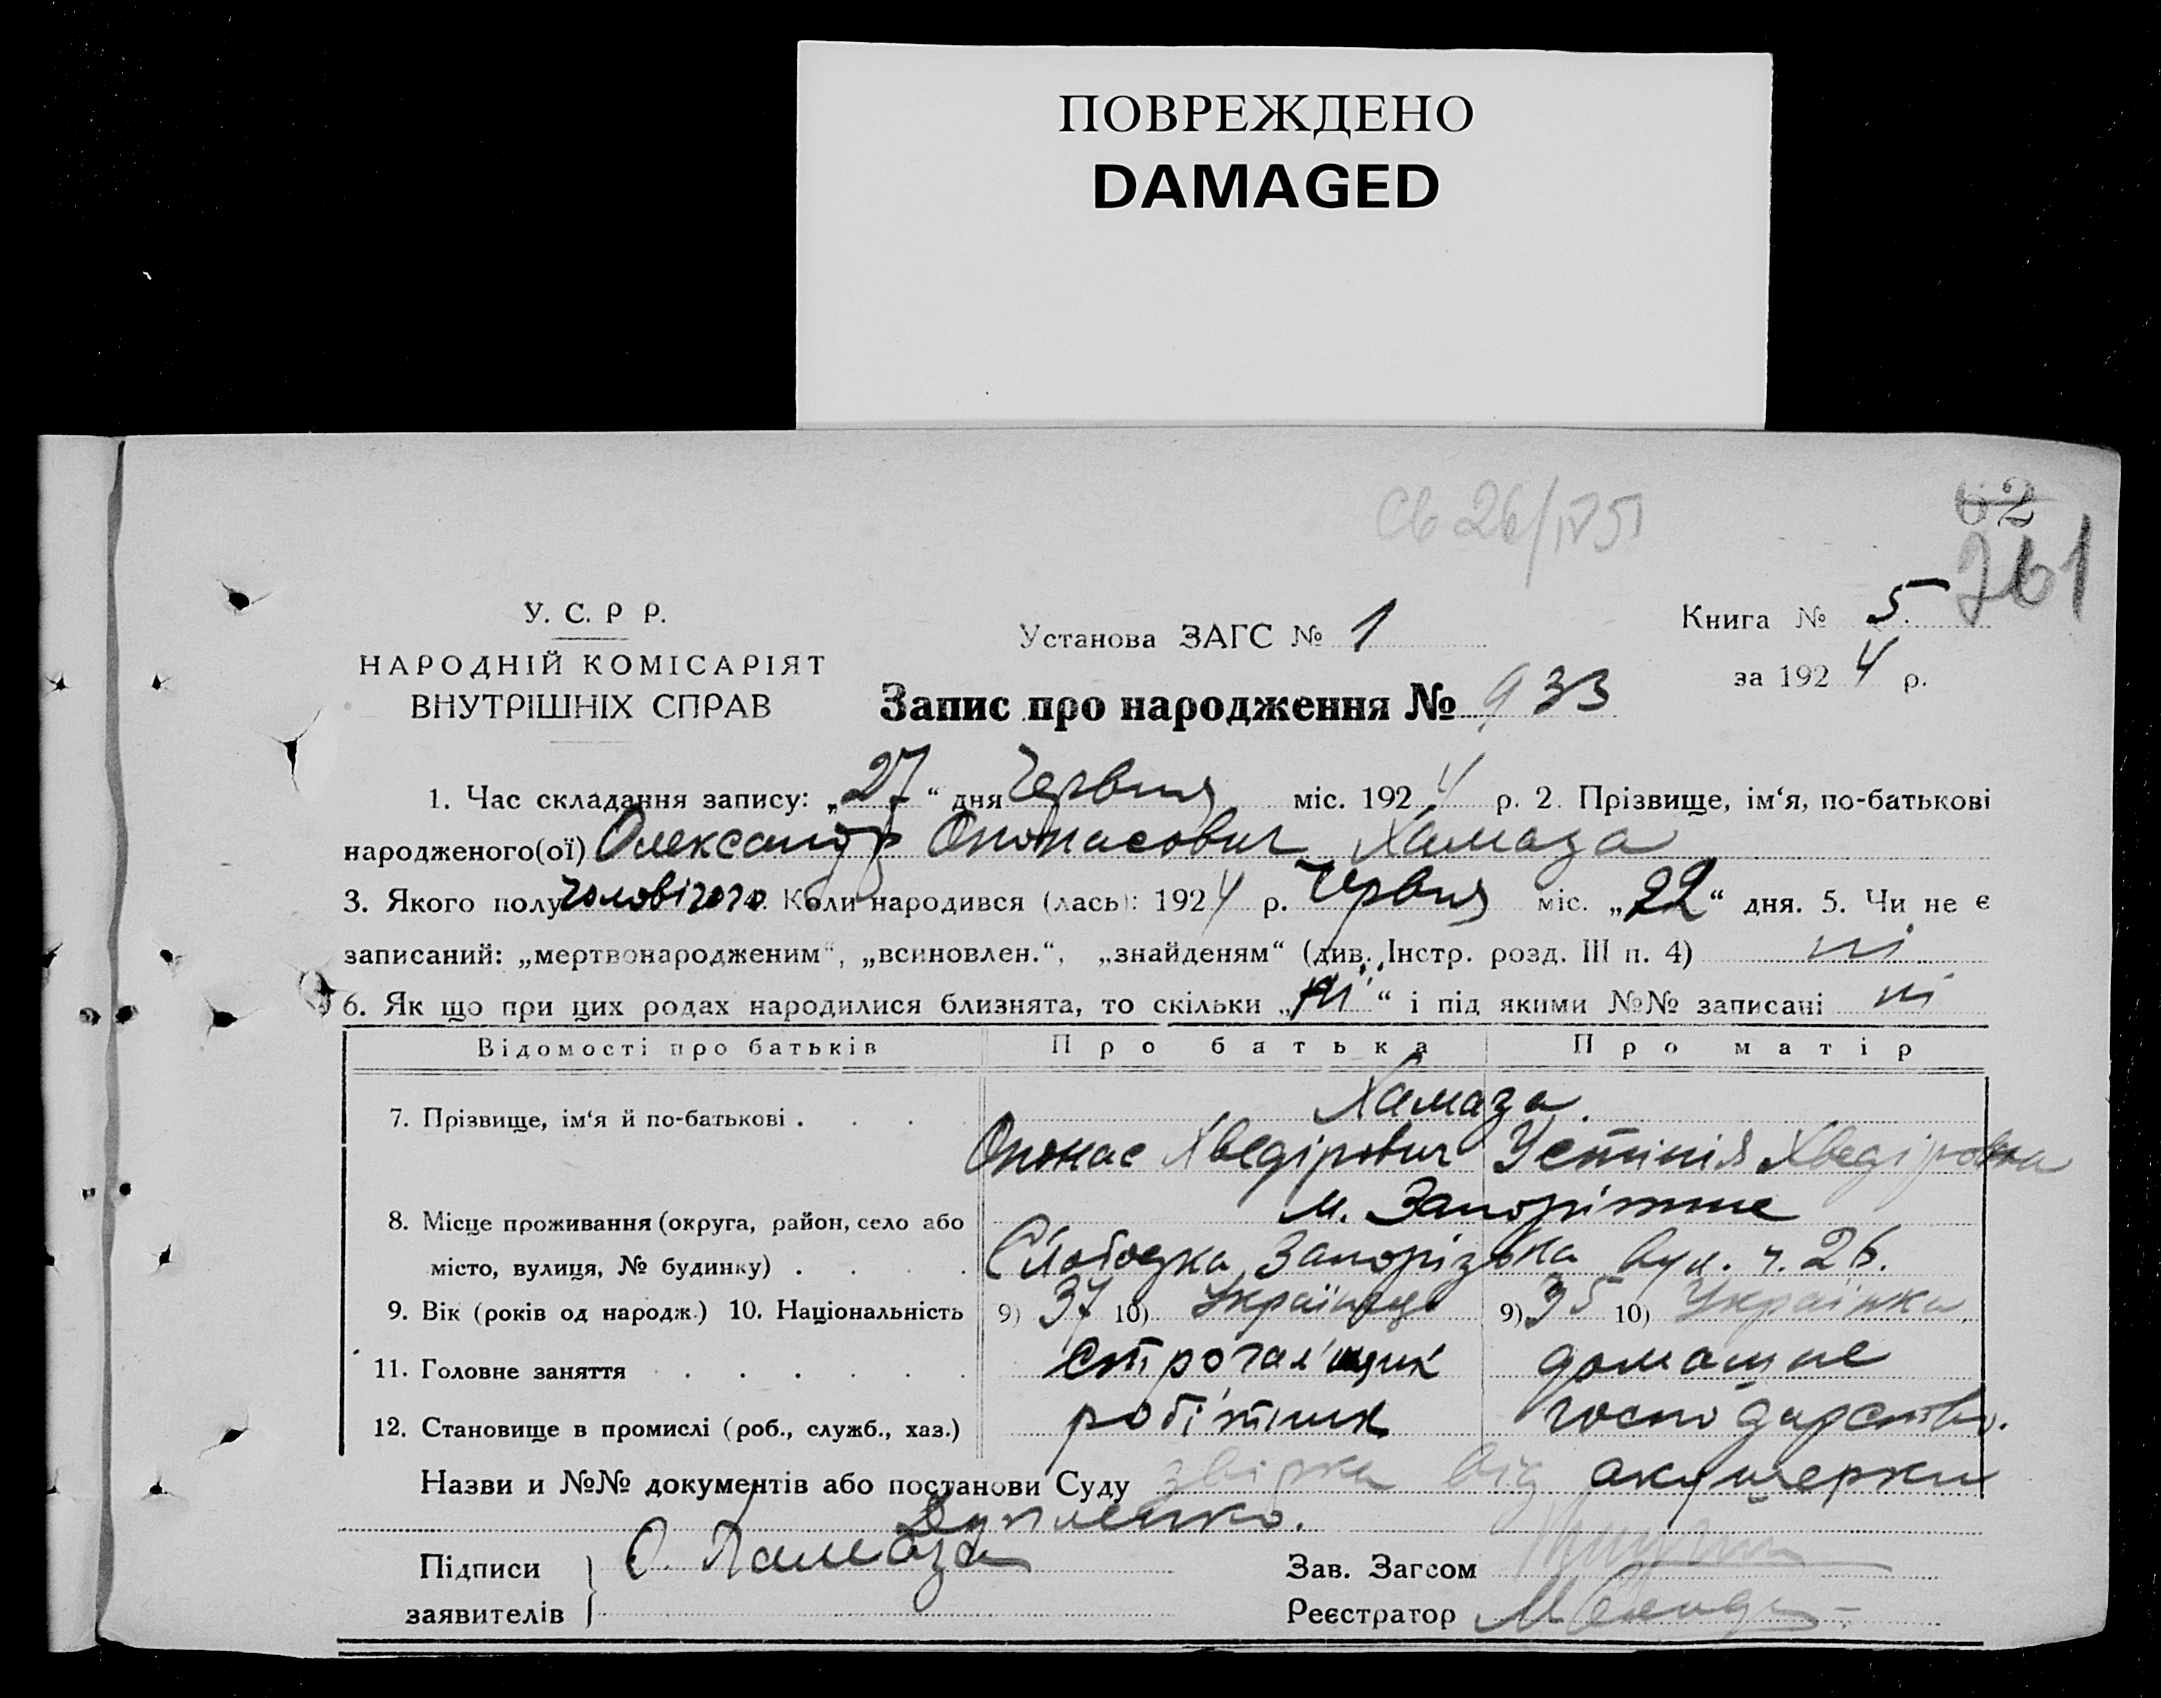 ПОВРЕЖДЕНО
DAMAGED
Св 26/IV 51
62
261
У. С. Р Р.
НАРОДНІЙ КОМІСАРІЯТ
ВНУТРІШНІХ СПРАВ
Установа ЗАГС № 1
Книга № 5
за 1924 р.
Запис про народження № 933
1. Час складання запису: „27“ дня Червня міс. 1924 р. 2. Прізвище, ім‘я, по-батькові
народженого(ої) Олександр Опонасович Хамаза
3. Якого полу чоловічого. Коли народився (лась): 1924 р. Червня міс. „22“ дня. 5. Чи не є
записаний: „мертвонародженим“, „всиновлен.“, „знайденям“ (див. Інстр. розд. III п. 4) ні
6. Як що при цих родах народилися близнята, то скільки „ні“ і під якими №№ записані ні
Відомості про батьків Про батька Про матір
7. Прізвище, ім‘я й по-батькові . . . Хамаза.
Опонас Хведірович Устинія Хведіровна
8. Місце проживання (округа, район, село або м. Запоріжжє
місто, вулиця, № будинку) . . . . Слободка, Запорізька вул. ч. 26.
9. Вік (років од народж.) 10. Національність 9) 37 10) Українець 9) 35 10) Українка
11. Головне заняття . . . . . . строгальщик домашнє
12. Становище в промислі (роб., служб., хаз.) робітник господарство.
Назви и №№ документів або постанови Суду звірка від акушерки
Підписи
заявителів
О. Хамаза
Зав. Загсом
Реєстратор